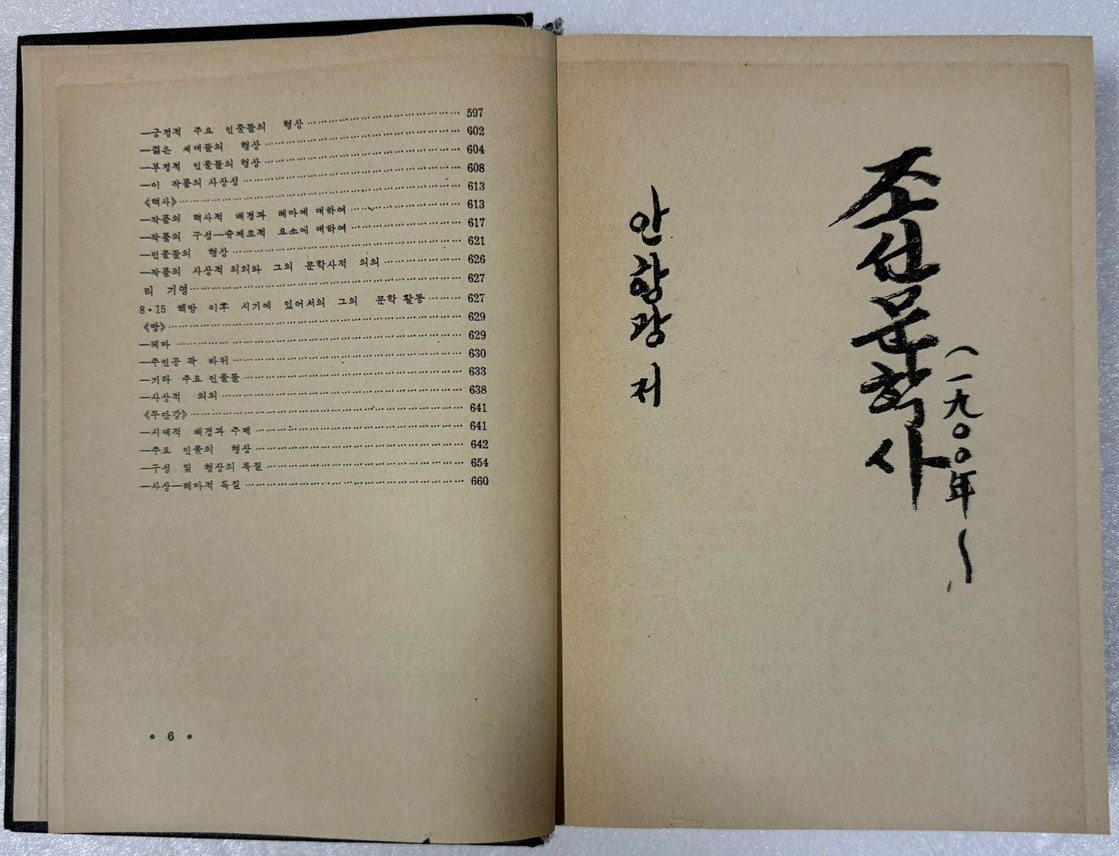 —긍정적 주요 인물들의 형상 …… 597
—젊은 세대들의 형상 …… 602
—부정적 인물들의 형상 …… 604
—이 작품의 사상성 …… 608
《력사》 …… 613
—작품의 력사적 배경과 테마에 대하여 …… 613
—작품의 구성—슈제트적 요소에 대하여 …… 617
—인물들의 형상 …… 621
—작품의 사상적 의의와 그의 문학사적 의의 …… 626
리 기영 …… 627
8·15 해방 이후 시기에 있어서의 그의 문학 활동 …… 627
《땅》 …… 629
—테마 …… 629
—주인공 곽 바위 …… 630
—기타 주요 인물들 …… 633
—사상적 의의 …… 638
《두만강》 …… 641
—시대적 배경과 주제 …… 641
—주요 인물의 형상 …… 642
—구성 및 형상의 특질 …… 654
—사상—테마적 특질 …… 660
• 6 •
(一九〇〇年~
조선문학사
안함광 저